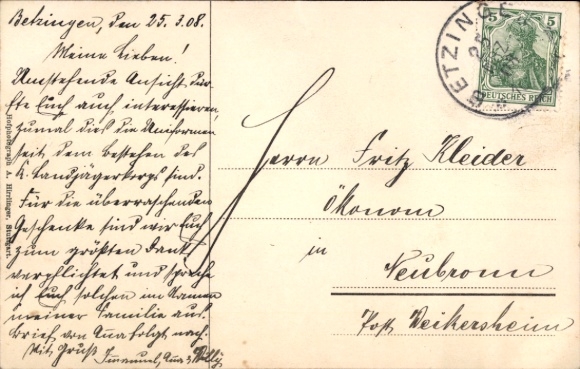 Betzingen, den 25.3.08.
Meine Lieben!
Umstehende Ansicht, dür-
fte Euch auch interessieren,
zumal dies die Uniformen
seit dem Bestehen des
K. Landjägerkorps sind.
Für die überraschenden
Geschenke sind wir Euch
zum größten Dank
verpflichtet und spreche
ich Euch solchen im Namen
meiner Familie aus.
Brief von Anna folgt nach.
Mit Gruß Immanuel, Anna & Willy
Hofphotograph A. Hirrlinger, Stuttgart.
BETZINGEN
25
5 5
DEUTSCHES REICH
Herrn Fritz Kleider
Ökonom
in
Neubronn
Post Weikersheim